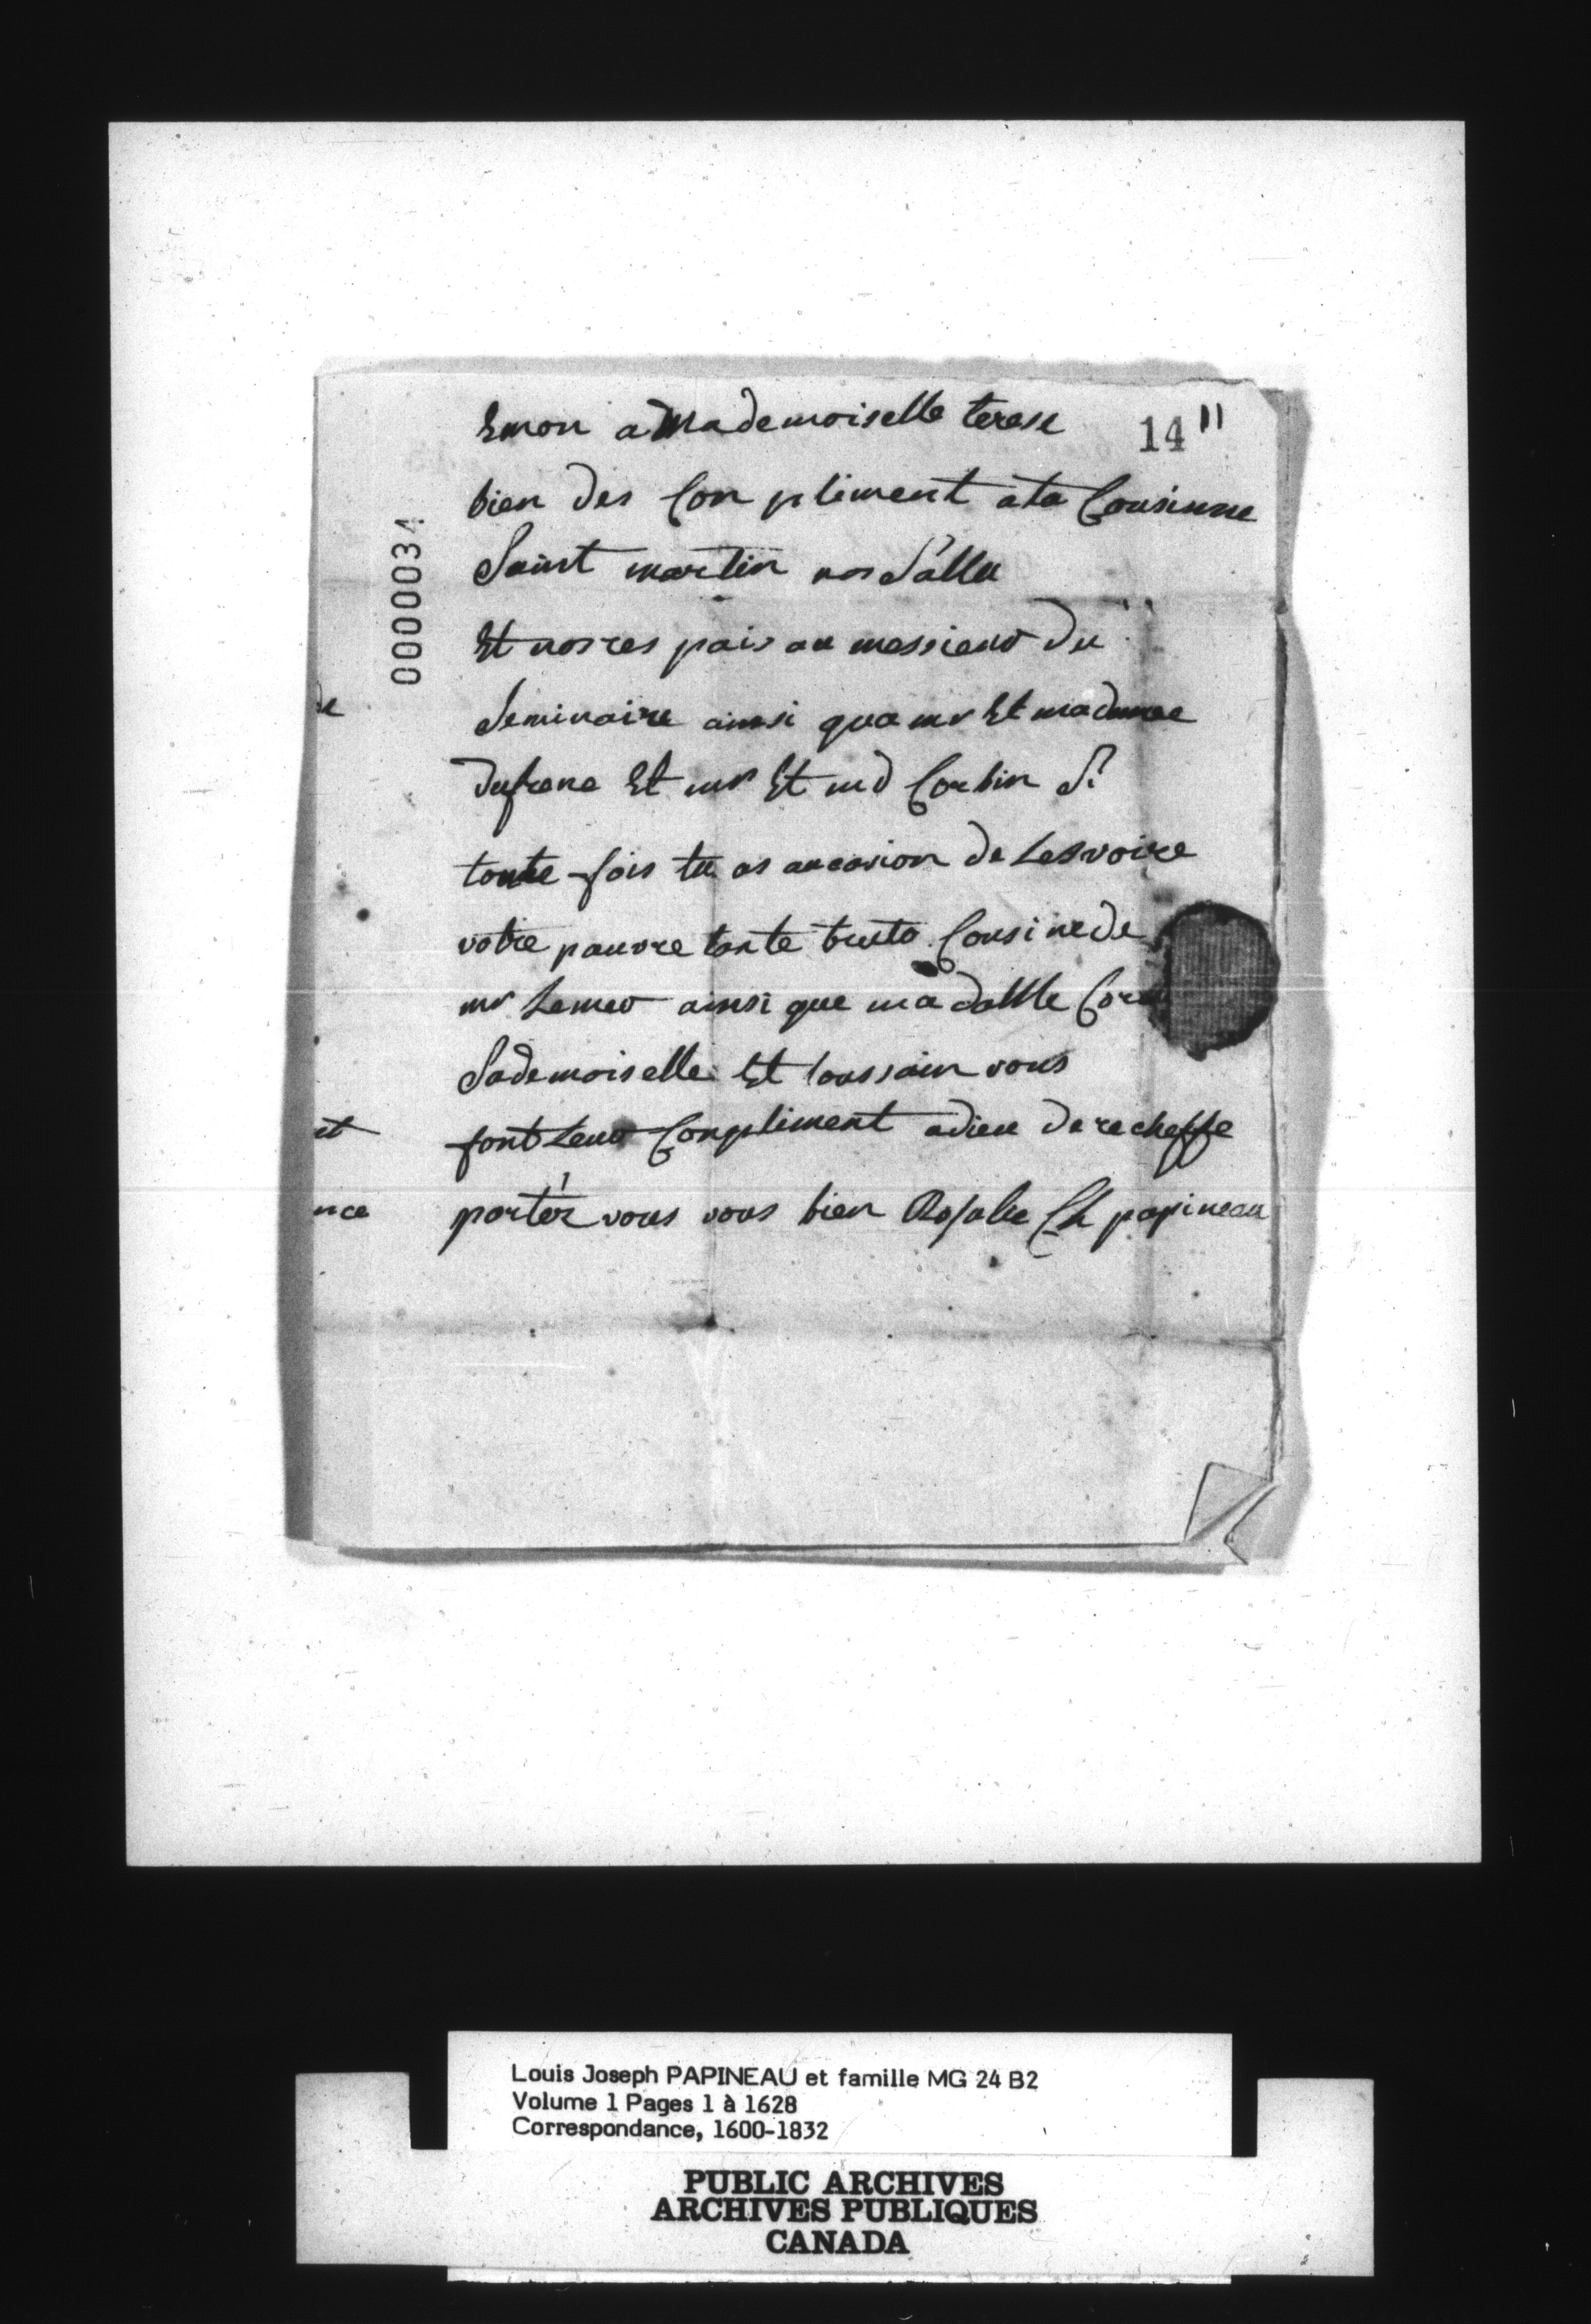 Emon a Mademoiselle terese
14 11
bien des Con pliment a ta Cousinne
Saint martin nos Sallu
Et nosres pais au messieur du
Seminaire ainsi qua mr Et madame
dufrene Et mr Et md Corbin Si
toute fois tu as aucasion de Les voire
votre pauvre tante Cousine de
mr Lemer ainsi que ma
Sademoiselle Et toussain vous
font Leur Conpliment adieu de recheffe
portér vous vous bien Rosalie Ch papineau
0000034
de
et
nce
Louis Joseph PAPINEAU et famille MG 24 B2
Volume 1 Pages 1 à 1628
Correspondance, 1600-1832
PUBLIC ARCHIVES
ARCHIVES PUBLIQUES
CANADA